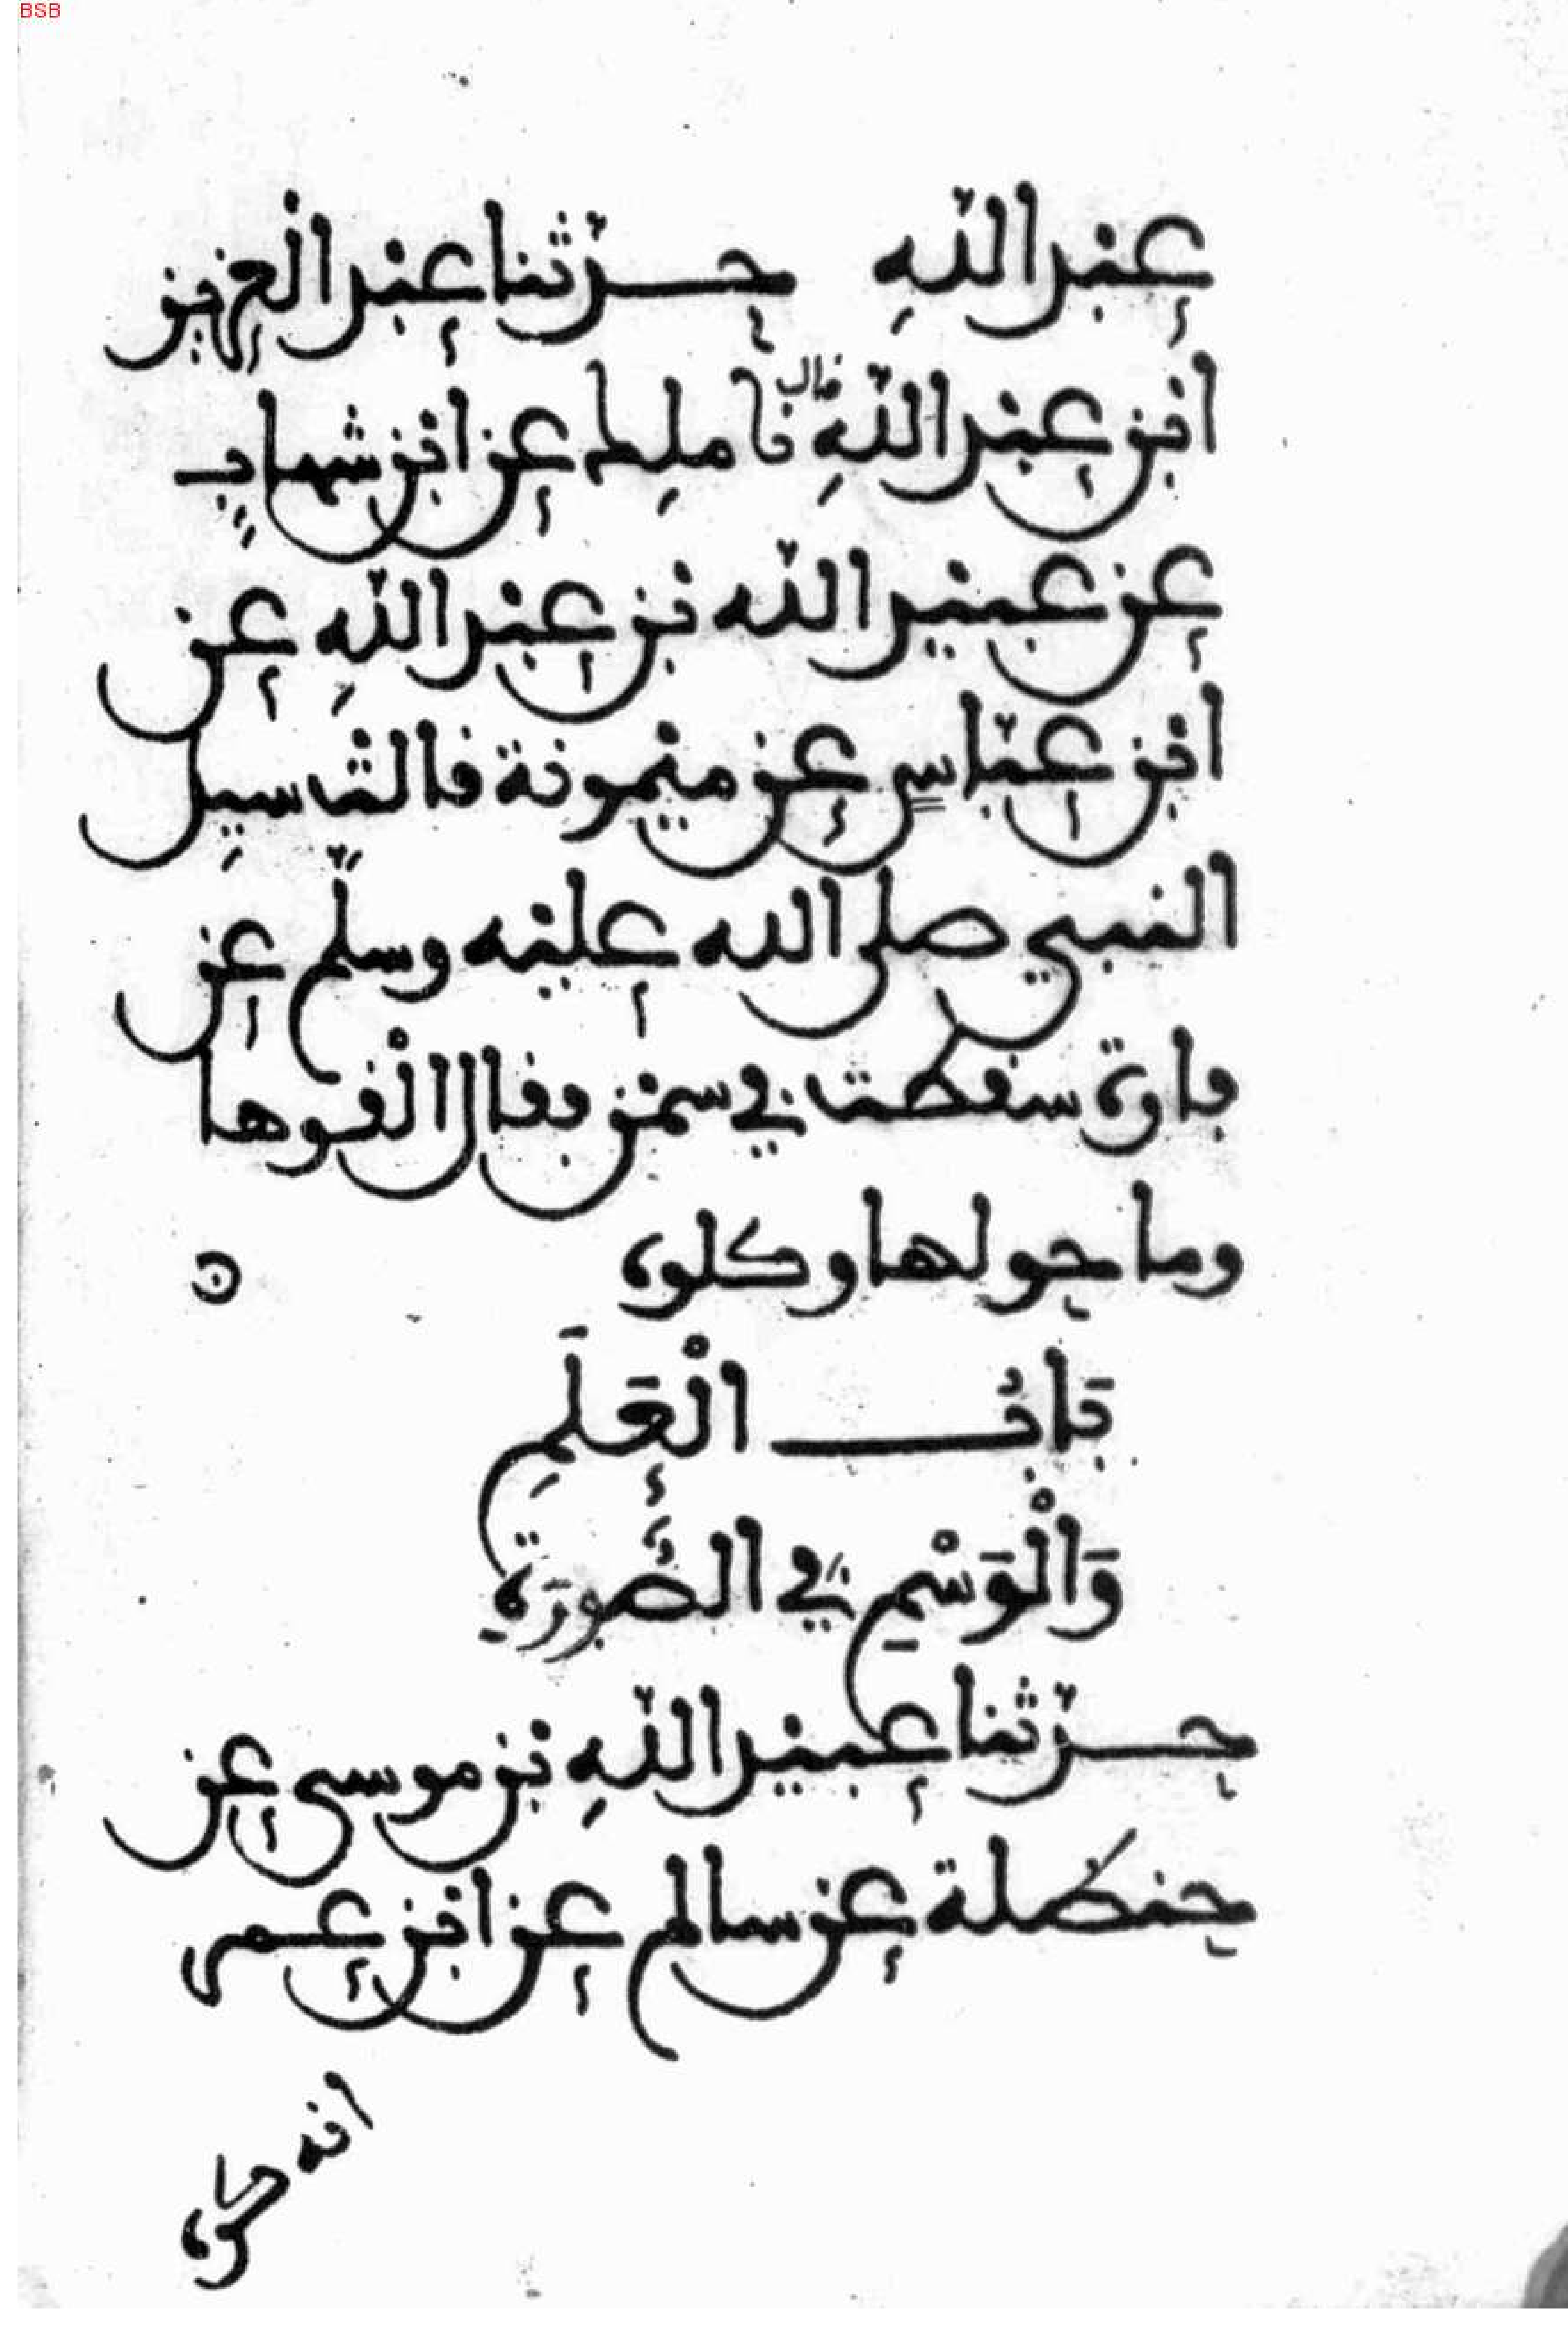 BSB
عبد اللّهِ حـدّثنا عبْد الْعزيز
ابن عبد اللّهِ قال نا ملِك عن ابن شهابٍ
عن عبيد اللّه بن عبْد اللّهِ عن
ابن عبّاسٍ عن ميْمونة قالتْ سيِل
النبي صلى الله عليْه وسلّم عن
فارة سقطت في سمْن فقال الْقوها
وما حولها وكلوه
بَابُ الْعَلَمِ
وَالْوَسْمِ في الصُّورَةِ
حـدّثنا عبيد اللّهِ بن موسى عن
حنظلة عن سالم عن ابن عمر
انه كره